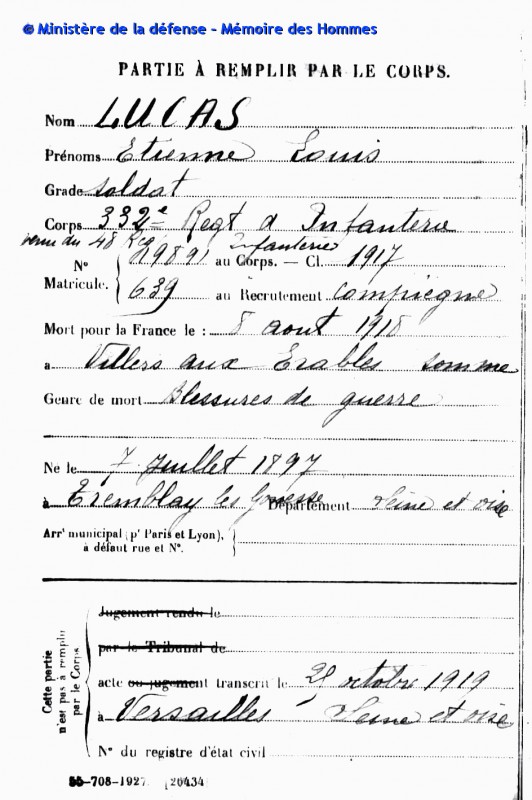 © Ministère de la défense - Mémoire des Hommes
PARTIE À REMPLIR PAR LE CORPS.
Nom LUCAS
Prénoms Etienne Louis
Grade soldat
Corps 332e Regt d Infanterie
venu du 48 Reg Infanterie
N° Matricule. { 29891 au Corps. — Cl. 1917
639 au Recrutement Compiegne
Mort pour la France le : 8 aout 1918
a Villers aux Erables Somme
Genre de mort Blessures de guerre
Ne le 7 Juillet 1897
à Tremblay les Gonesse Département Seine et oise
Arrt municipal (pr Paris et Lyon),
à défaut rue et N°.
Cette partie n'est pas à remplir par le Corps
Jugement rendu le
par le Tribunal de
acte ou jugement transcrit le 21 octobre 1919
à Versailles Seine et oise
N° du registre d'état civil
35-708-1927. (20434)